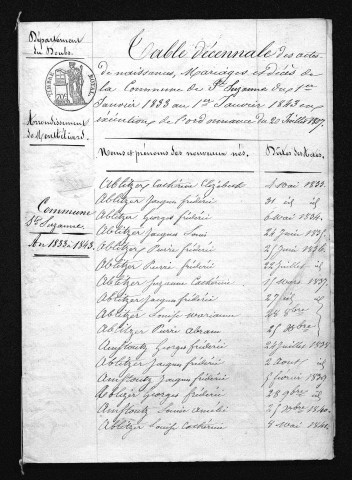 Département
du Doubs.
TIMBRE ROYAL
Arrondissement
de Montbéliard.
Commune
Ste Suzanne.
An 1833 à 1843.
Table décennale des actes
de naissances, Mariages et Décès de
la Commune de Ste Suzanne du 1er
Janvier 1833 au 1er Janvier 1843 en
exécution de l'ordonnance du 20 Juillet 1807.
Noms et prénoms des nouveaux nés. Dates des Actes.
Ablitzer Catherine Elizabeth 4 mai 1833.
Ablitzer Jaques fréderic 31 id
Ablitzer Georges fréderic 6 mai 1834.
Ablitzer Jacques Louis 26 juin 1835.
Ablitzer Pierre fréderic 25 juin 1836.
Ablitzer Pierre fréderic 22 juillet id
Ablitzer Suzanne Catherine 15 mars 1837.
Ablitzer Jacques fréderic 27 id
Ablitzer Louise marianne 28 8bre id
Ablitzer Pierre abram 25 Xbre id
Amstoutz Georges fréderic 24 juillet 1838
Ablitzer Jacques fréderic 2 aout id
Amstoutz Jacques fréderic 5 février 1839
Ablitzer Georges fréderic 28 9bre id
Amstoutz Louise Amélie 25 Xbre 1840.
Ablitzer Louise Catherine 5 mai 1841.